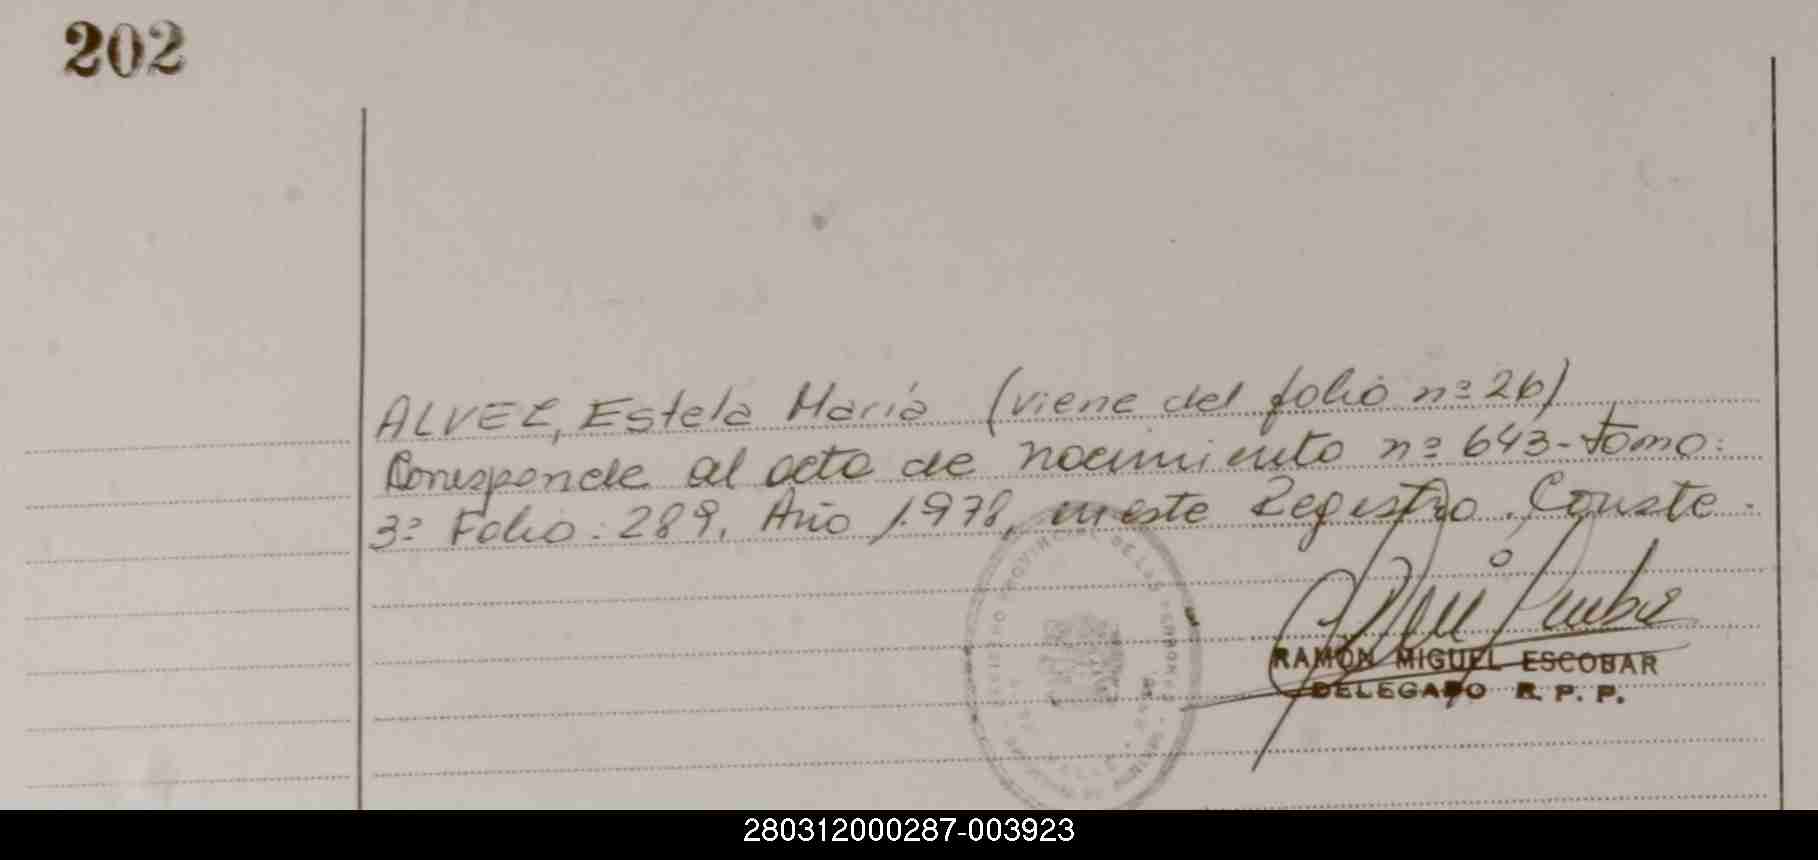 202
ALVEZ, Estela María (viene del folio nº 26)
Corresponde al acta de nacimiento nº 643-Tomo:
3º Folio: 289. Año 1.978, en este Registro. Conste.-
REGISTRO PROVINCIAL DE LAS PERSONAS
RAMÓN MIGUEL ESCOBAR
DELEGADO R. P. P.
280312000287-003923